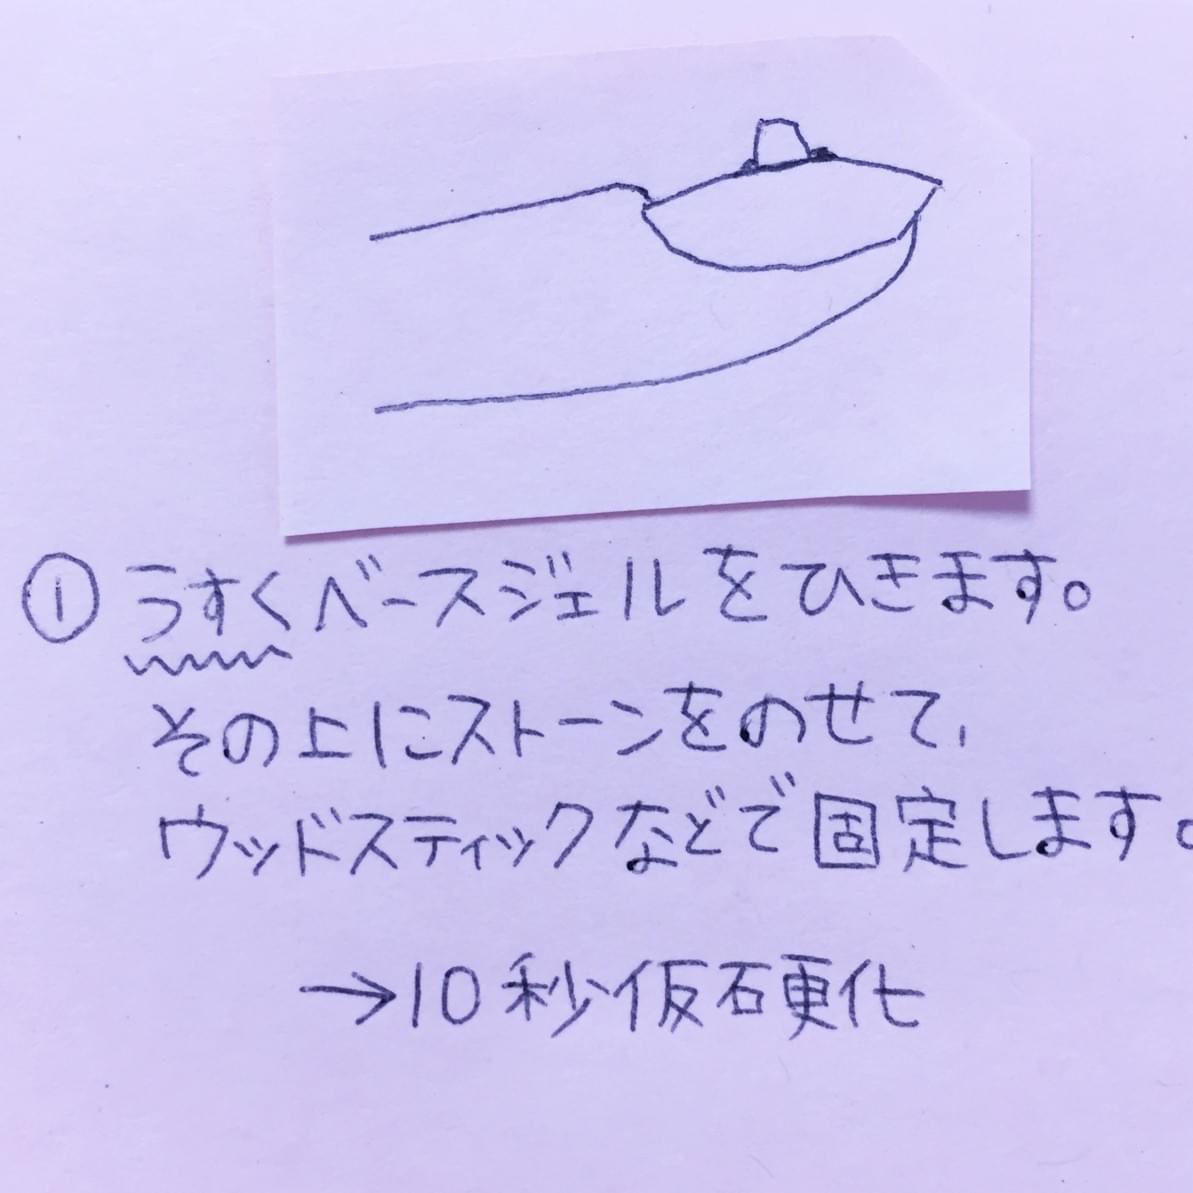 ① うすくベースジェルをひきます。
その上にストーンをのせて、
ウッドスティックなどで固定します。
→10秒仮硬化